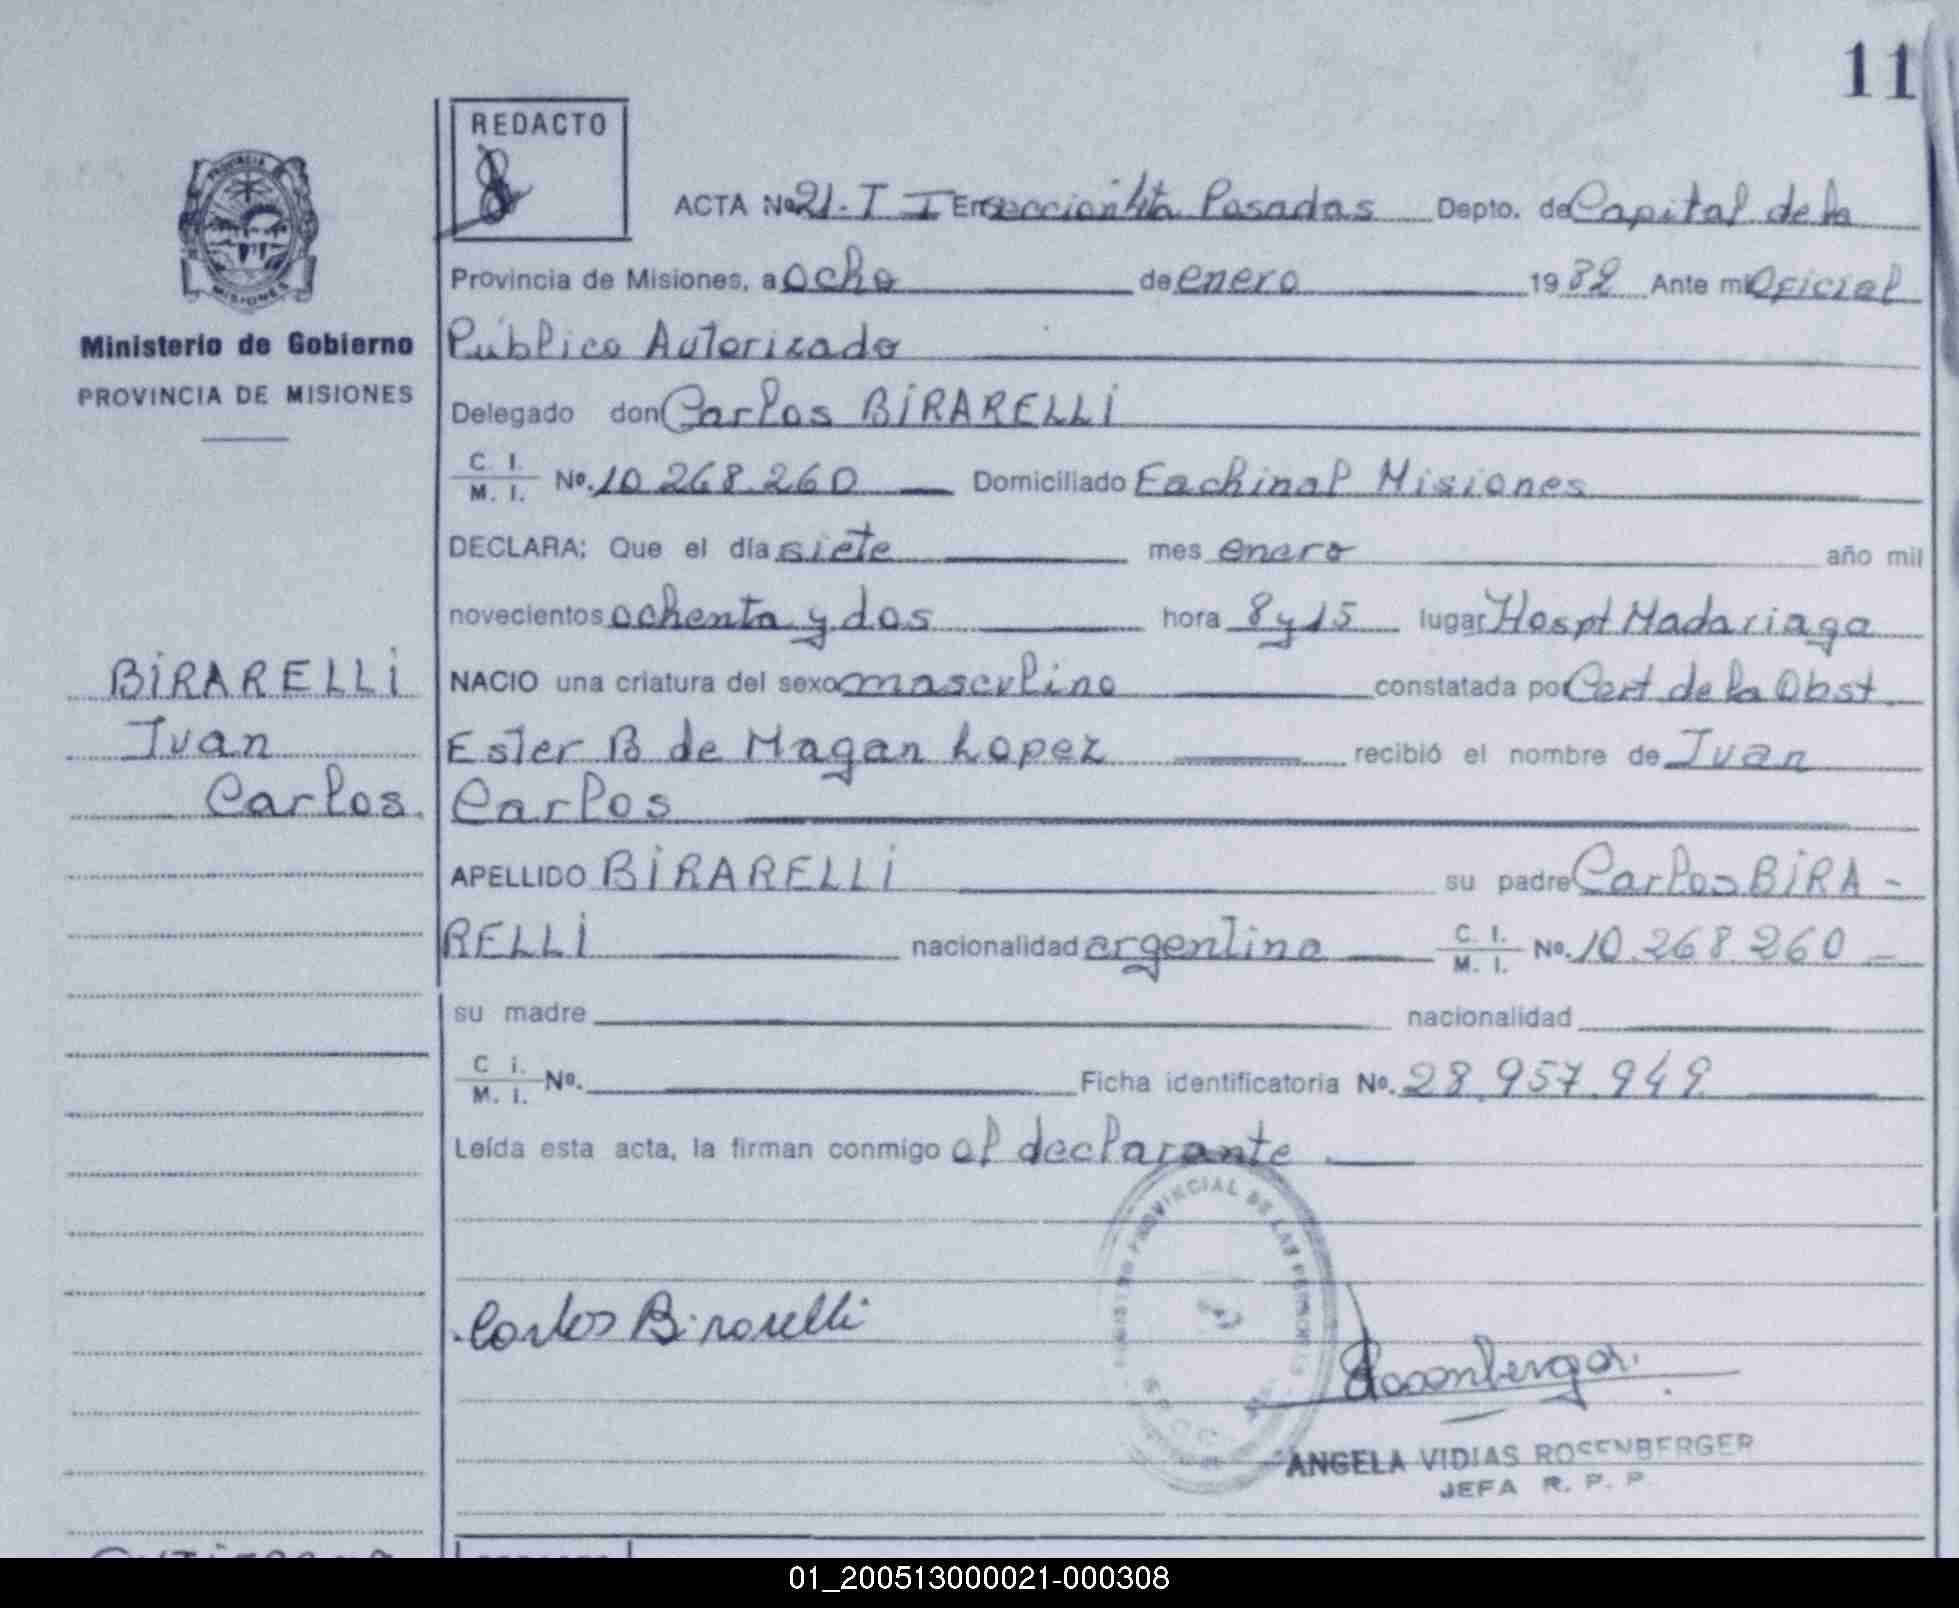 11
REDACTO
PROVINCIA DE
MISIONES
ACTA Nº 21-T I En seccion 4ta Posadas Depto. de Capital de la
Provincia de Misiones, a ocho de enero 1982 Ante mi Oficial
Ministerio de Gobierno
Público Autorizado
PROVINCIA DE MISIONES
Delegado don Carlos BIRARELLI
C. I. / M. I. Nº. 10.268.260 Domiciliado Fachinal Misiones
DECLARA; Que el día siete mes enero año mil
novecientos ochenta y dos hora 8 y 15 lugar Hospt Madariaga
BIRARELLI
NACIO una criatura del sexo masculino constatada por Cert de la Obst.
Ivan
Ester B de Magan Lopez recibió el nombre de Ivan
Carlos.
Carlos
APELLIDO BIRARELLI su padre Carlos BIRA-
RELLI nacionalidad argentina C. I. / M. I. Nº. 10.268.260
su madre nacionalidad
C. i. / M. I. Nº. Ficha identificatoria Nº. 28.957.949
Leída esta acta, la firman conmigo el declarante
PROVINCIAL DE LAS PERSONAS
Carlos Birarelli
Rosenberger
ANGELA VIDIAS ROSENBERGER
JEFA R. P. P.
01_200513000021-000308